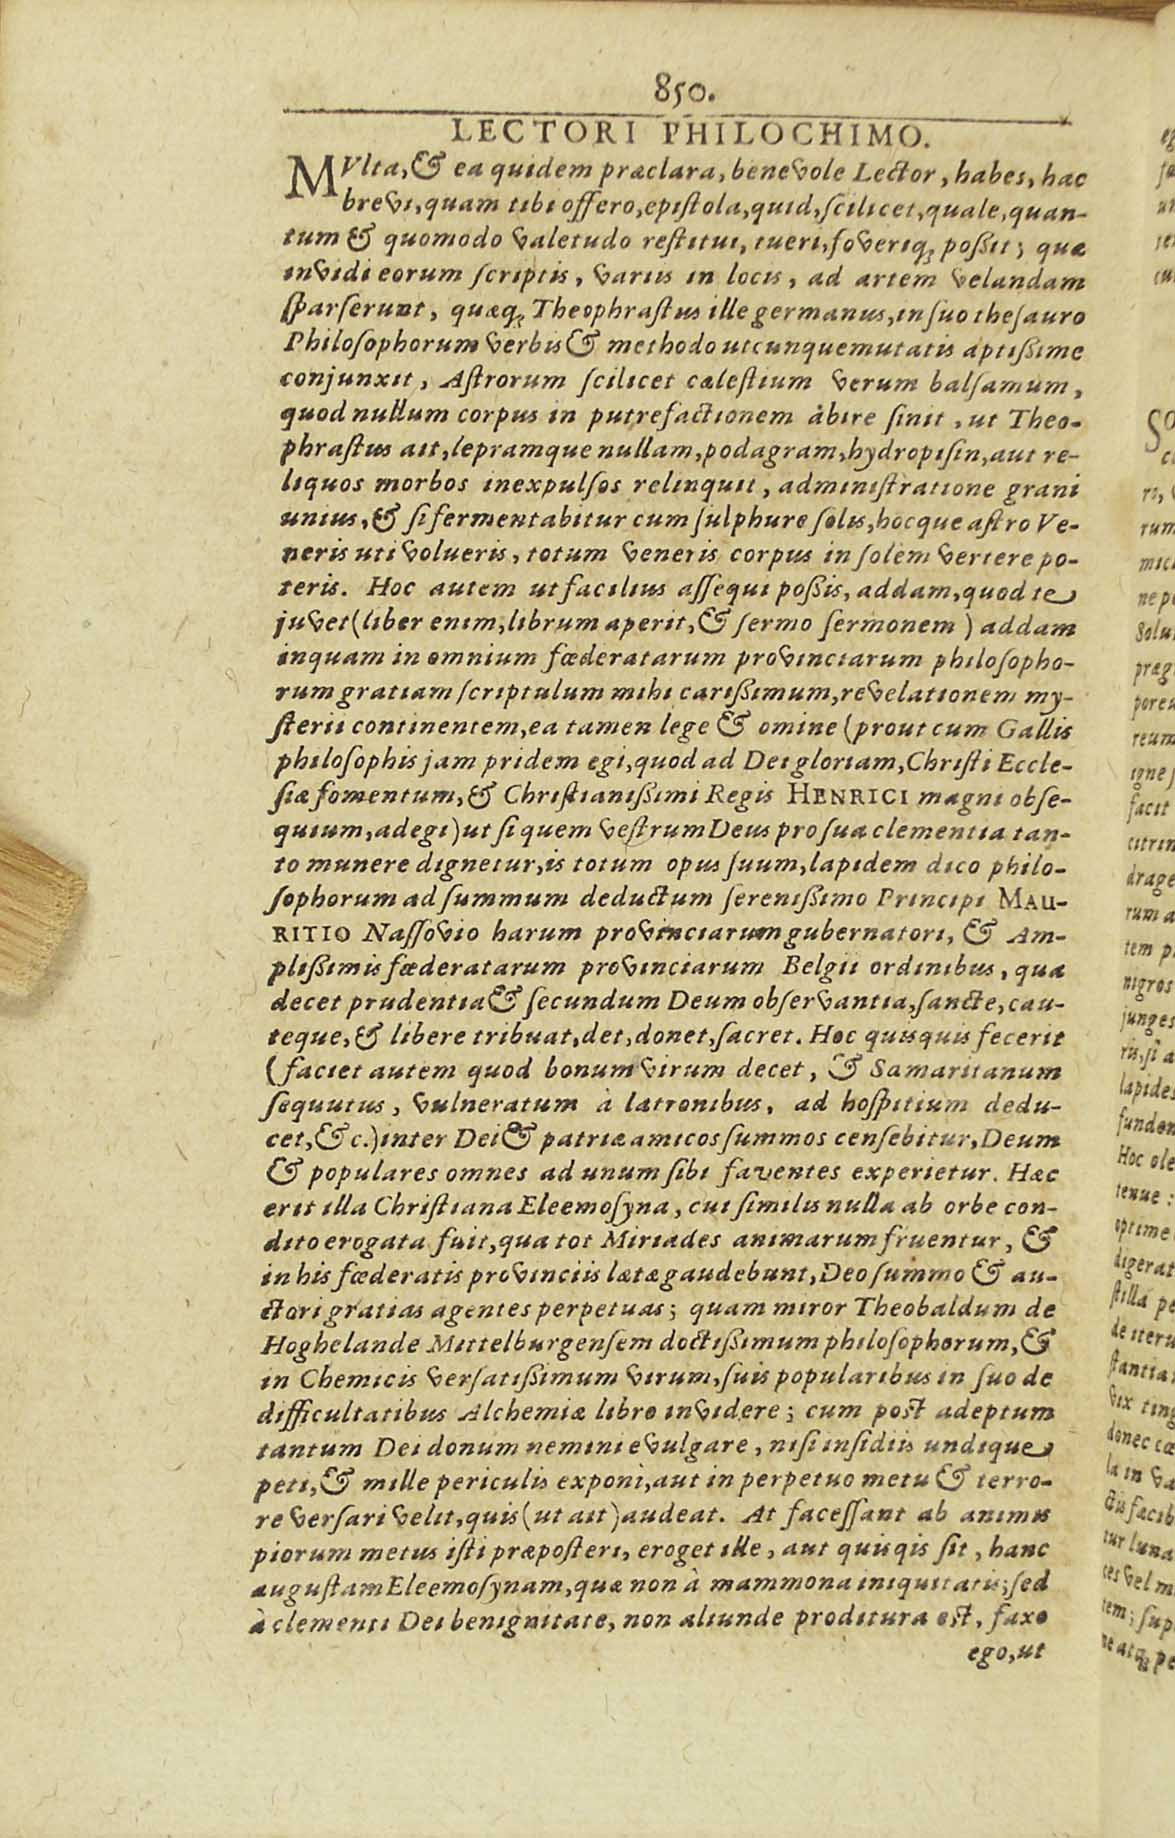 850.
LECTORI PHILOCHIMO.
MVlta, & ea quidem præclara, benevole Lector, habes, hac
brevi, quam tibi offero, epistola, quid, scilicet, quale, quan-
tum & quomodo valetudo restitui, tueri, foveriq; possit; quæ
invidi eorum scriptis, variis in locis, ad artem velandam
sparserunt, quæq; Theophrastus ille germanus, in suo thesauro
Philosophorum verbis & methodo utcunque mutatis aptissime
conjunxit, Astrorum scilicet cælestium verum balsamum,
quod nullum corpus in putrefactionem àbire sinit, ut Theo-
phrastus ait, lepramque nullam, podagram, hydropisin, aut re-
liquos morbos inexpulsos relinquit, administratione grani
unius, & si fermentabitur cum sulphure solis, hocque astro Ve-
neris uti volueris, totum veneris corpus in solem vertere po-
teris. Hoc autem ut facilius assequi possis, addam, quod te
juvet (liber enim, librum aperit, & sermo sermonem) addam
inquam in omnium fœderatarum provinciarum philosopho-
rum gratiam scriptulum mihi carissimum, revelationem my-
sterii continentem, ea tamen lege & omine (prout cum Gallis
philosophis jam pridem egi, quod ad Dei gloriam, Christi Eccle-
siæ fomentum, & Christianissimi Regis HENRICI magni obse-
quium, adegi) ut si quem vestrum Deus pro sua clementia tan-
to munere dignetur, is totum opus suum, lapidem dico philo-
sophorum ad summum deductum serenissimo Principi MAU-
RITIO Nassovio harum provinciarum gubernatori, & Am-
plissimis fœderatarum provinciarum Belgii ordinibus, qua
decet prudentia & secundum Deum observantia, sancte, cau-
teque, & libere tribuat, det, donet, sacret. Hoc quisquis fecerit
(faciet autem quod bonum virum decet, & Samaritanum
sequutus, vulneratum à latronibus, ad hospitium dedu-
cet, & c.) inter Dei & patriæ amicos summos censebitur, Deum
& populares omnes ad unum sibi faventes experietur. Hæc
erit illa Christiana Eleemosyna, cui similis nulla ab orbe con-
dito erogata fuit, qua tot Miriades animarum fruentur, &
in his fœderatis provinciis lætæ gaudebunt, Deo summo & au-
ctori gratias agentes perpetuas; quam miror Theobaldum de
Hoghelande Mittelburgensem doctissimum philosophorum, &
in Chemicis versatissimum virum, suis popularibus in suo de
difficultatibus Alchemiæ libro invidere; cum post adeptum
tantum Dei donum nemini evulgare, nisi insidiis undique
peti, & mille periculis exponi, aut in perpetuo metu & terro-
re versari velit, quis (ut ait) audeat. At facessant ab animis
piorum metus isti præposteri, eroget ille, aut quisqis sit, hanc
augustam Eleemosynam, quæ non à mammona iniquitatis; sed
à clementi Dei benignitate, non aliunde proditura est, faxo
ego, ut